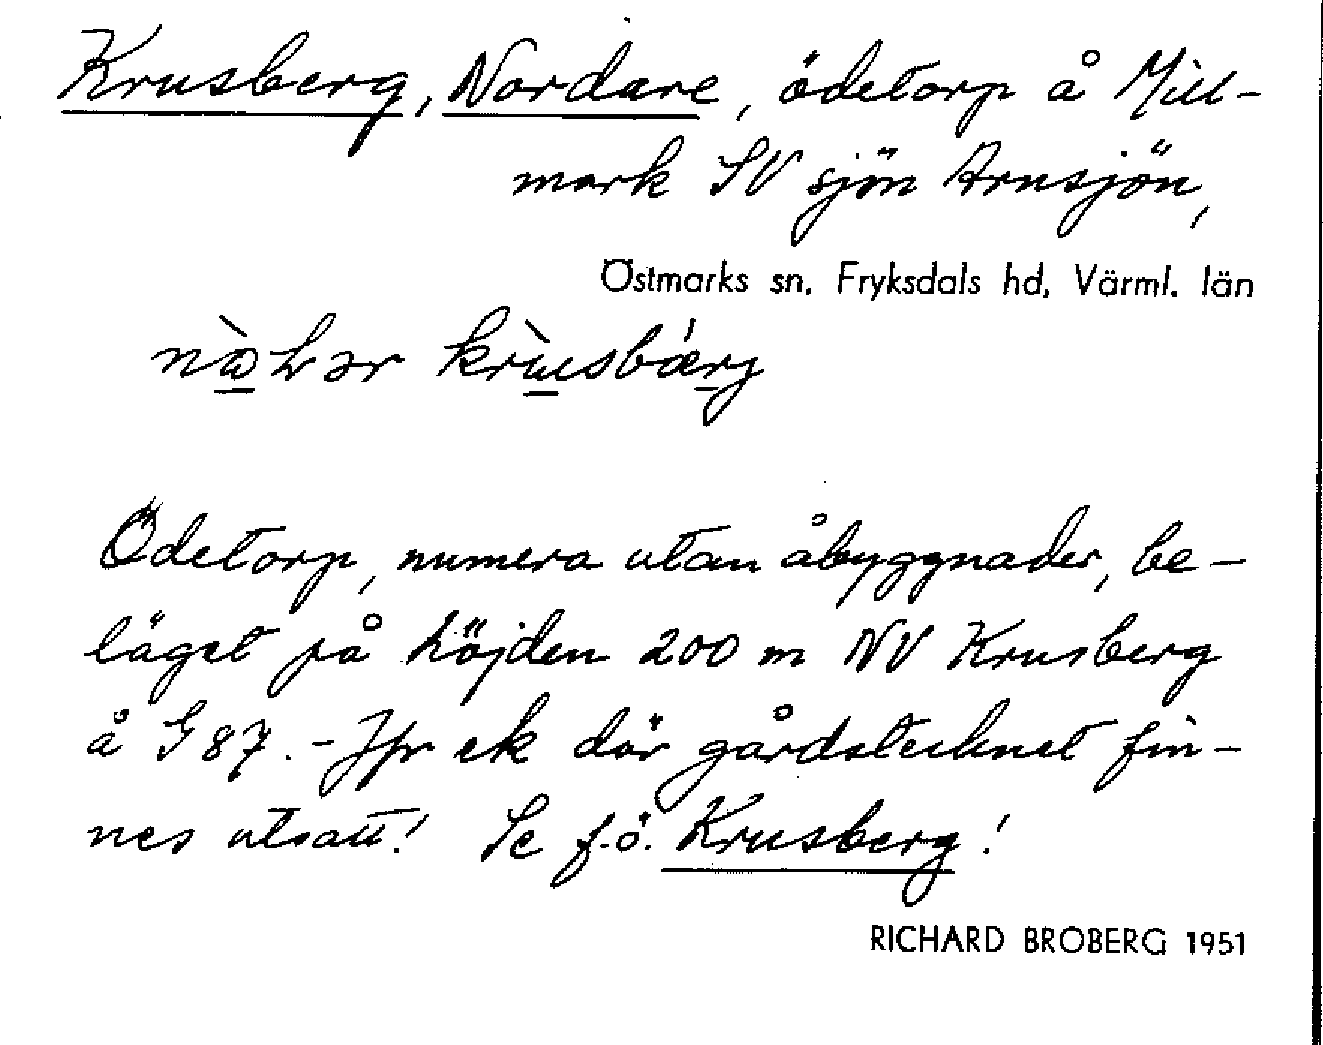 Krusberg, Nordare, ödetorp å Mill-
mark SV sjön Arnsjön,
Östmarks sn. Fryksdals hd, Värml. län
Ödetorp, numera utan åbyggnader, be-
läget på höjden 200 m NV Krusberg
å G 87. - Jfr ek där gårdstecknet fin-
nes utsatt! Se f.ö. Krusberg!
RICHARD BROBERG 1951